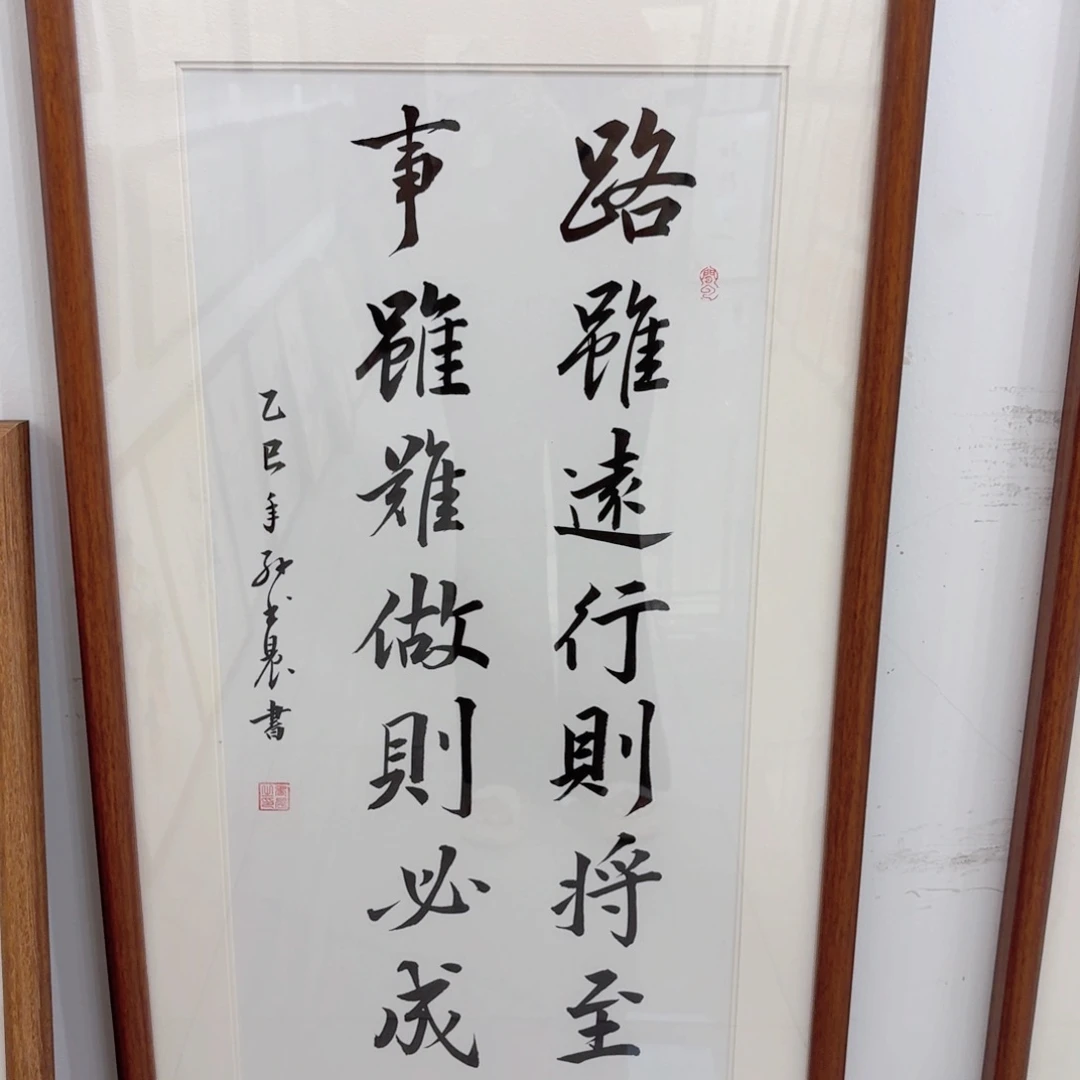 路雖遠行則将至
事雖難做則必成
乙巳年 書